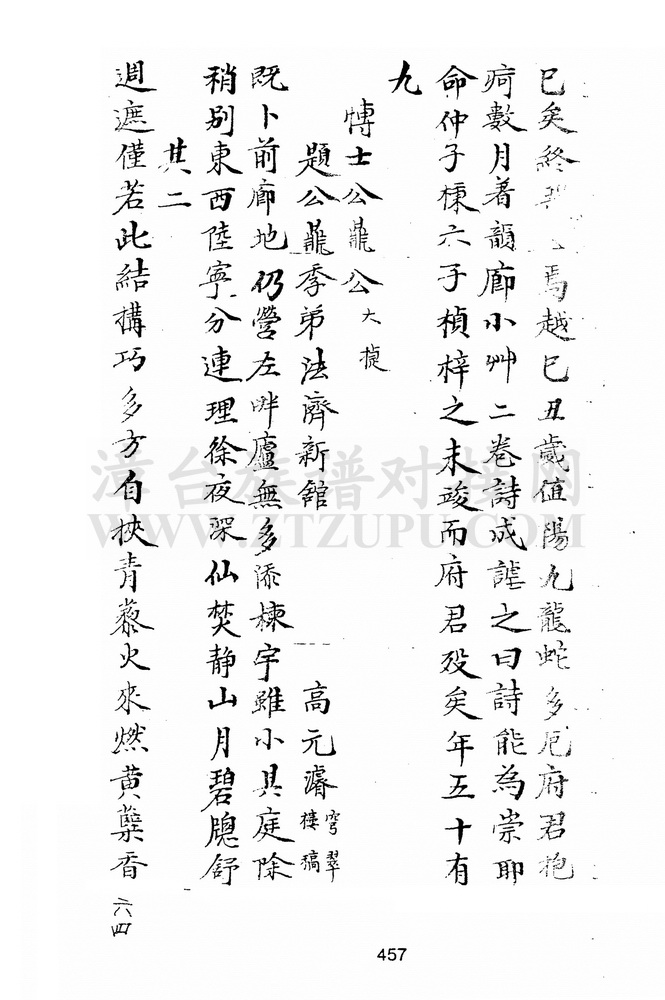 已矣終焉越已丑歲值陽九龍蛇多厄府君抱
疴數月着韻廊小艸二卷詩成謔之曰詩能為崇耶
命仲子棟六子楨梓之未竣而府君歿矣年五十有
九
愽士公鼐公大楨
題公鼐季弟法齊新館 高元濬穹翠樓稿
既卜前廊地仍營左畔廬無多添棟宇雖小具庭除
稍別東西陸寧分連理徐夜深仙焚静山月碧牕舒
其二
週遮僅若此結搆巧多方自挾青藜火來燃黄蘗香
六四
457
漳台族谱对接网
WWW.ZTZUPU.COM